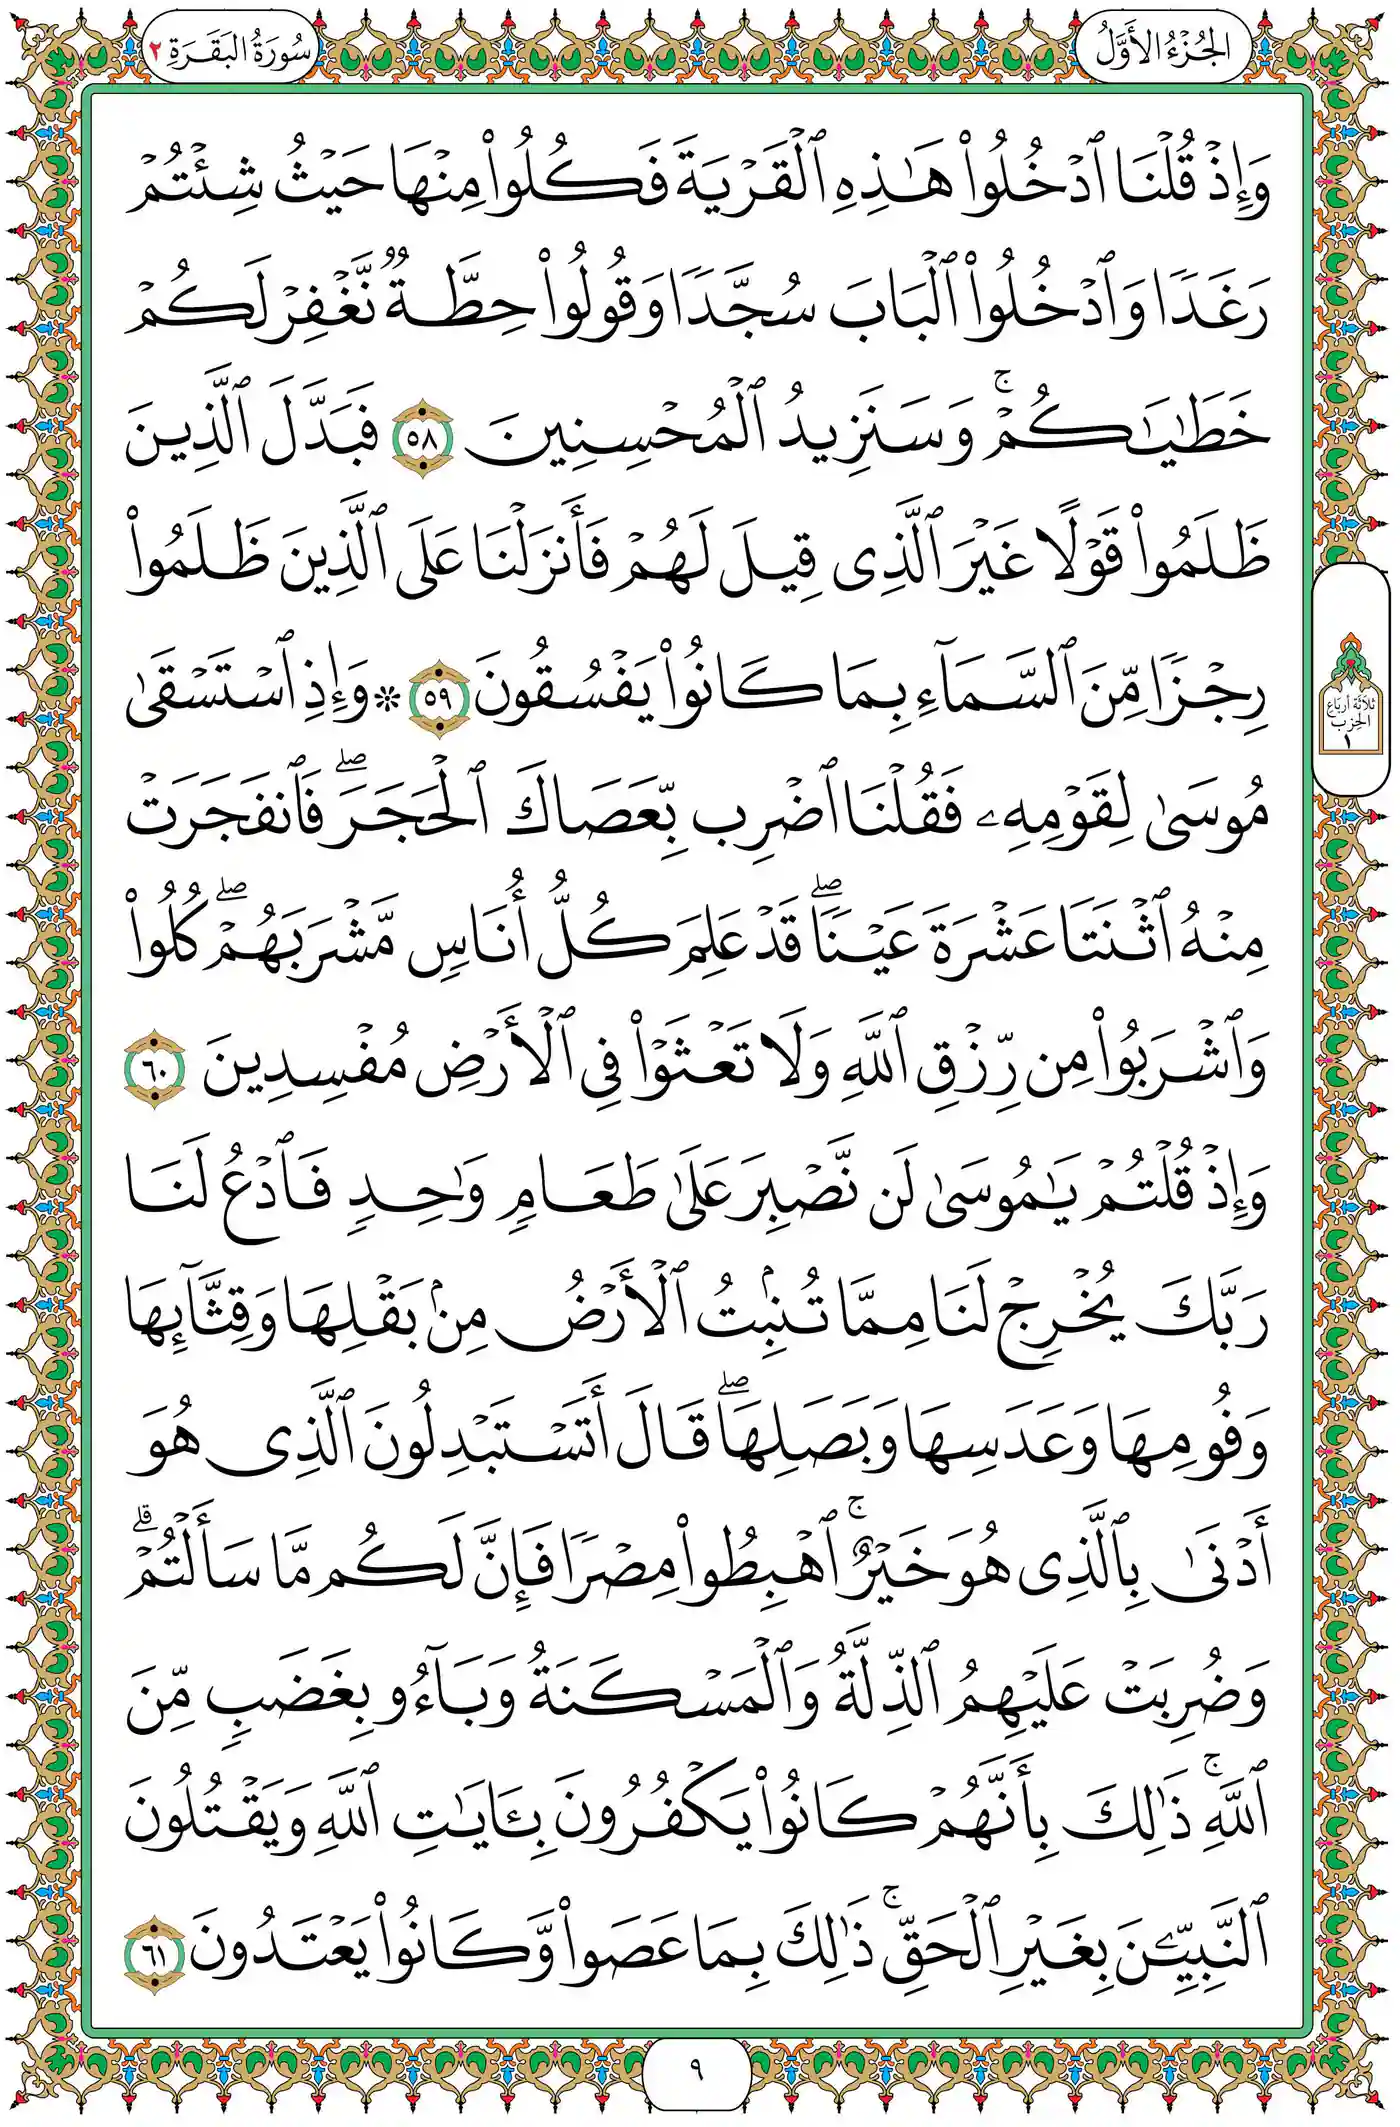 الجُزْءُ الأَوَّلُ
سُورَةُ البَقَرَةِ ٢
وَإِذْ قُلْنَا ٱدْخُلُوا۟ هَـٰذِهِ ٱلْقَرْيَةَ فَكُلُوا۟ مِنْهَا حَيْثُ شِئْتُمْ
رَغَدًا وَٱدْخُلُوا۟ ٱلْبَابَ سُجَّدًا وَقُولُوا۟ حِطَّةٌ نَّغْفِرْ لَكُمْ
خَطَـٰيَـٰكُمْ ۚ وَسَنَزِيدُ ٱلْمُحْسِنِينَ ٥٨ فَبَدَّلَ ٱلَّذِينَ
ظَلَمُوا۟ قَوْلًا غَيْرَ ٱلَّذِى قِيلَ لَهُمْ فَأَنزَلْنَا عَلَى ٱلَّذِينَ ظَلَمُوا۟
رِجْزًا مِّنَ ٱلسَّمَآءِ بِمَا كَانُوا۟ يَفْسُقُونَ ٥٩ ۞ وَإِذِ ٱسْتَسْقَىٰ
مُوسَىٰ لِقَوْمِهِۦ فَقُلْنَا ٱضْرِب بِّعَصَاكَ ٱلْحَجَرَ ۖ فَٱنفَجَرَتْ
مِنْهُ ٱثْنَتَا عَشْرَةَ عَيْنًا ۖ قَدْ عَلِمَ كُلُّ أُنَاسٍ مَّشْرَبَهُمْ ۖ كُلُوا۟
وَٱشْرَبُوا۟ مِن رِّزْقِ ٱللَّهِ وَلَا تَعْثَوْا۟ فِى ٱلْأَرْضِ مُفْسِدِينَ ٦٠
وَإِذْ قُلْتُمْ يَـٰمُوسَىٰ لَن نَّصْبِرَ عَلَىٰ طَعَامٍ وَٰحِدٍ فَٱدْعُ لَنَا
رَبَّكَ يُخْرِجْ لَنَا مِمَّا تُنۢبِتُ ٱلْأَرْضُ مِنۢ بَقْلِهَا وَقِثَّآئِهَا
وَفُومِهَا وَعَدَسِهَا وَبَصَلِهَا ۖ قَالَ أَتَسْتَبْدِلُونَ ٱلَّذِى هُوَ
أَدْنَىٰ بِٱلَّذِى هُوَ خَيْرٌ ۚ ٱهْبِطُوا۟ مِصْرًا فَإِنَّ لَكُم مَّا سَأَلْتُمْ ۗ
وَضُرِبَتْ عَلَيْهِمُ ٱلذِّلَّةُ وَٱلْمَسْكَنَةُ وَبَآءُو بِغَضَبٍ مِّنَ
ٱللَّهِ ۚ ذَٰلِكَ بِأَنَّهُمْ كَانُوا۟ يَكْفُرُونَ بِـَٔايَـٰتِ ٱللَّهِ وَيَقْتُلُونَ
ٱلنَّبِيِّـۧنَ بِغَيْرِ ٱلْحَقِّ ۚ ذَٰلِكَ بِمَا عَصَوا۟ وَّكَانُوا۟ يَعْتَدُونَ ٦١
ثَلَاثَةُ أَربَاعِ
الحِزْبِ
١
٩